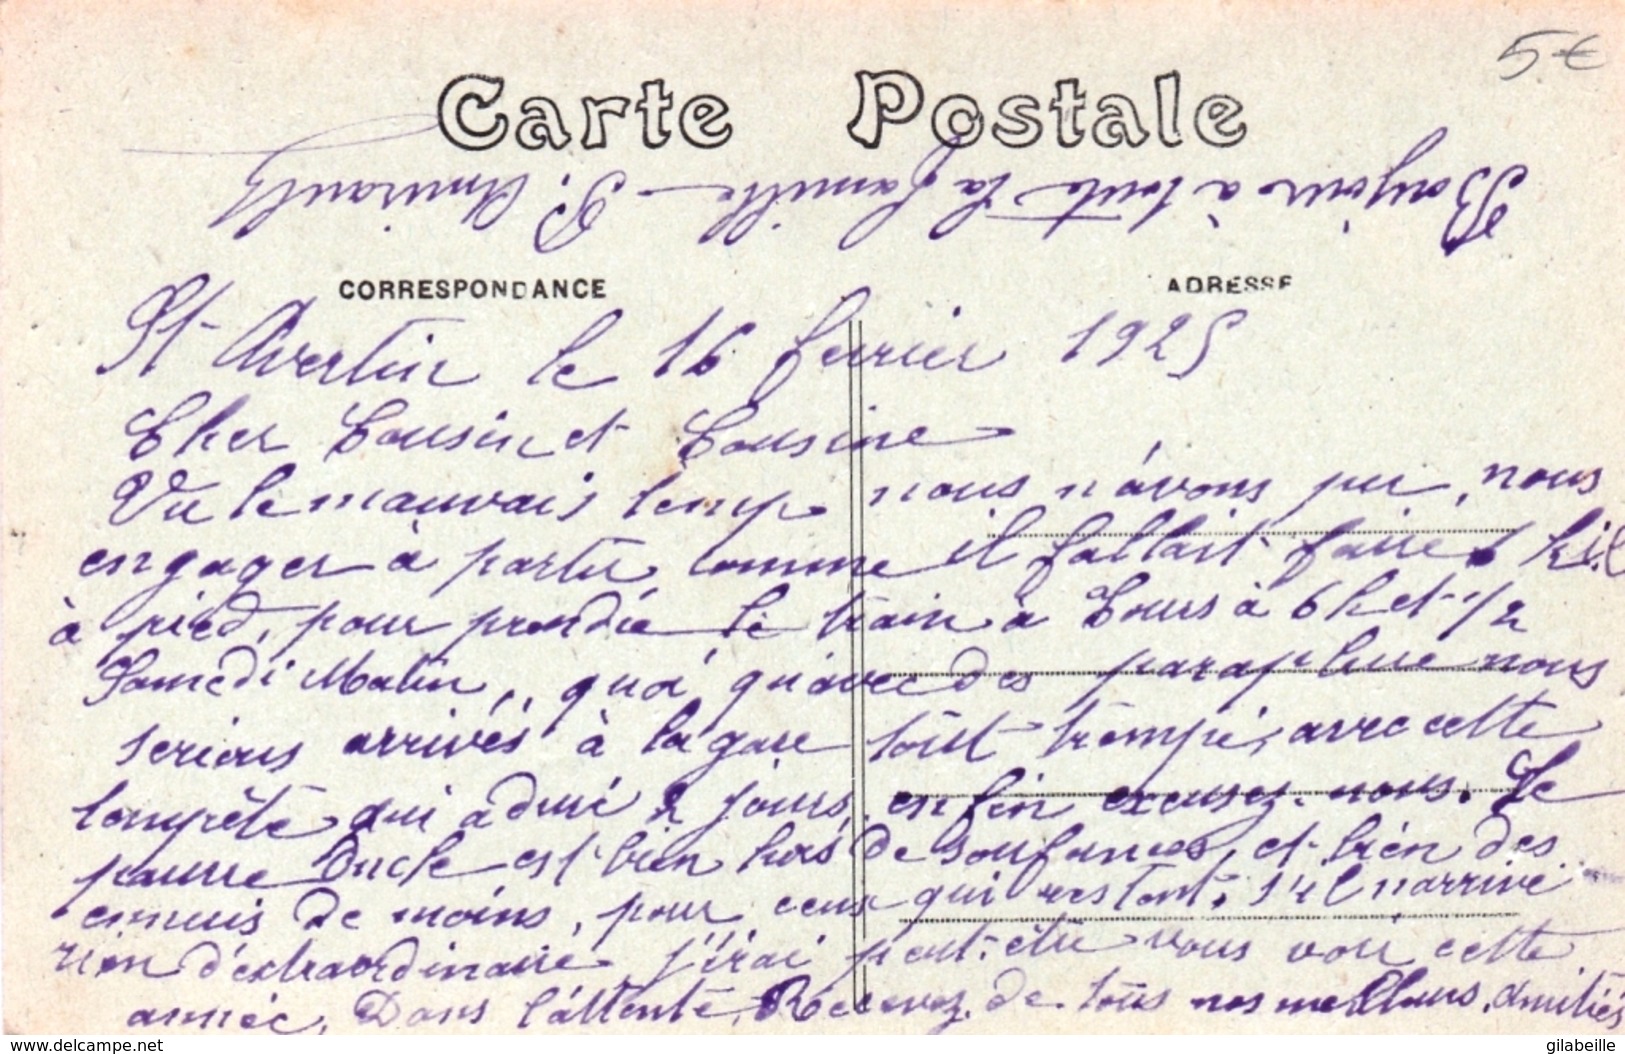 5 €
Carte Postale
Bonjour à toute la famille - P.
CORRESPONDANCE
ADRESSE
St Avertin le 16 fevrier 1925
Cher Cousin et Cousine
Vu le mauvais temp nous n'avons pu, nous
engager à partir comme il fallait faire
à pied, pour prendre le train à Tours à 6h et 1/2
Samedi Matin, quoi qu'avec des parapluie nous
serions arrivés à la gare tout trempé, avec cette
tempête qui a duré 2 jours, enfin excusez-nous. Le
pauvre Oncle est bien hors de soufrances, et bien des
ennuis de moins, pour ceux qui restent, s'il n'arrive
rien d'extraordinaire, j'irai peut-être vous voir cette
année, Dans l'attente, Recevez de tous nos meilleurs amitiés
www.delcampe.net
gilabeille